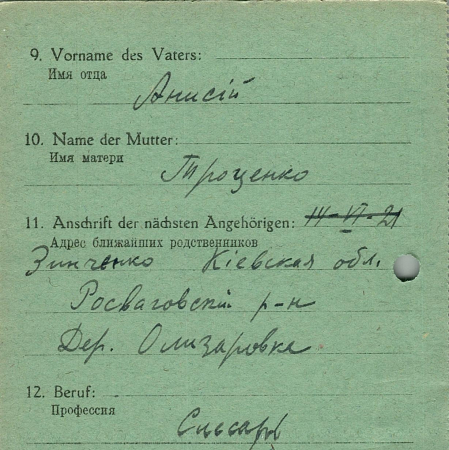 9. Vorname des Vaters:
Имя отца
Анисій
10. Name der Mutter:
Имя матери
Троценко
11. Anschrift der nächsten Angehörigen: 14-VI-21
Адрес ближайших родственников
Зинченко Кіевская обл.
Росваговскій р-н
Дер. Олизаровка
12. Beruf:
Профессия
Слесарь